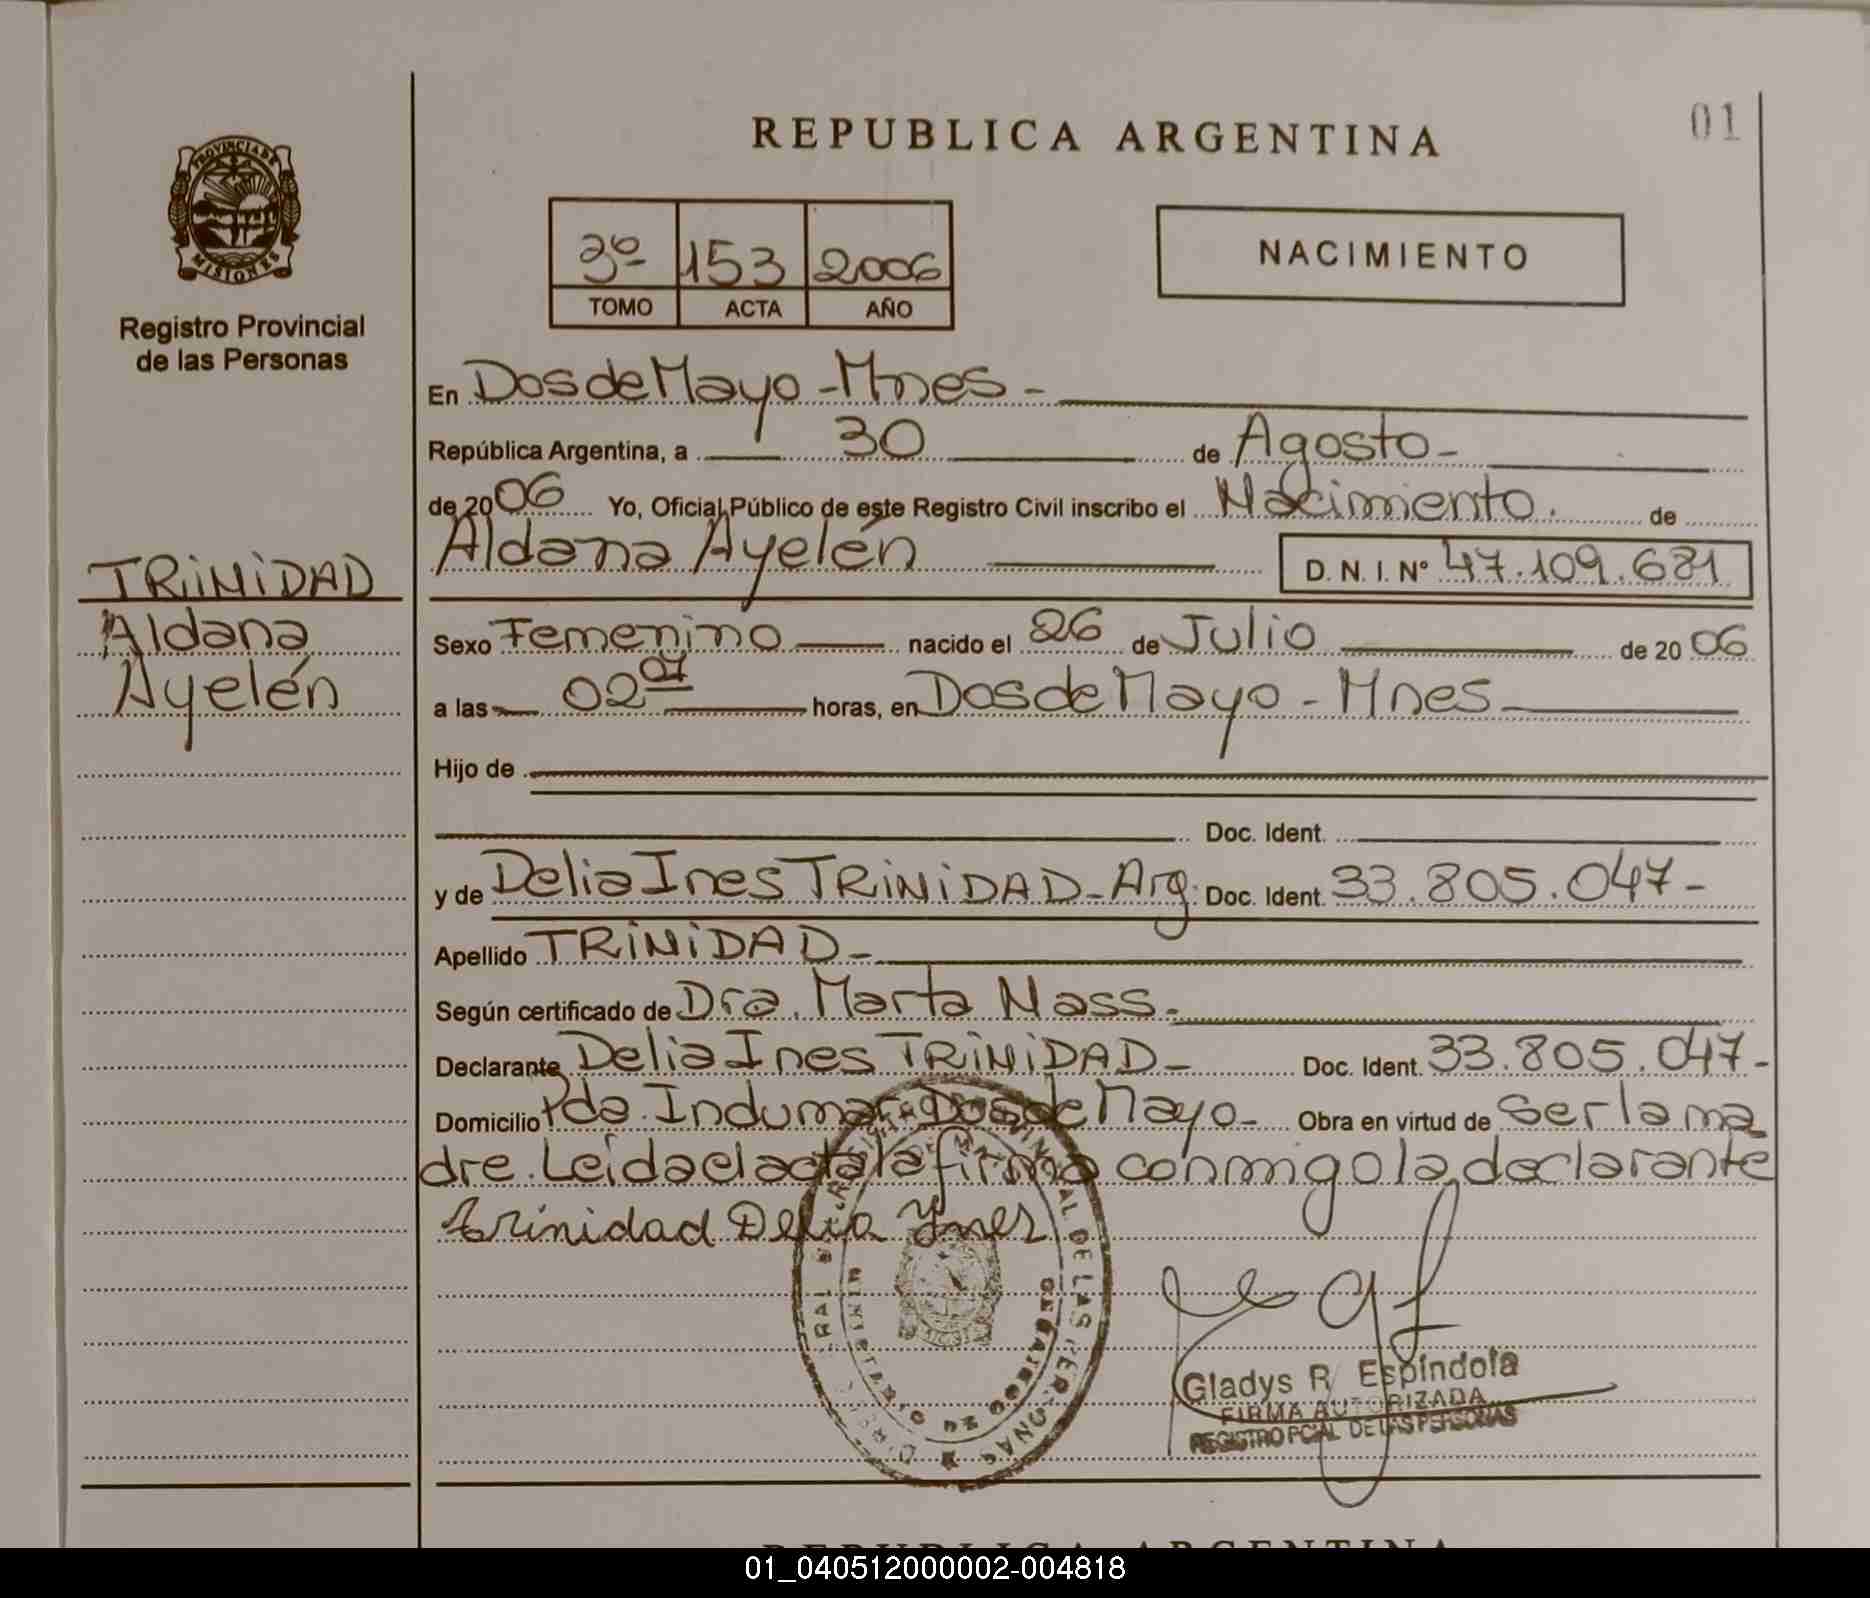 REPUBLICA ARGENTINA
01
PROVINCIA DE
MISIONES
Registro Provincial
de las Personas
3º 153 2006
TOMO ACTA AÑO
NACIMIENTO
En Dos de Mayo - Mnes -
República Argentina, a 30 de Agosto -
de 2006 Yo, Oficial Público de este Registro Civil inscribo el Nacimiento. de
Aldana Ayelén D. N. I. Nº 47.109.681
TRINIDAD
Aldana
Ayelén
Sexo Femenino nacido el 26 de Julio de 2006
a las 02 07 horas, en Dos de Mayo - Mnes -
Hijo de
Doc. Ident.
y de Delia Ines TRINIDAD - Arg. Doc. Ident. 33.805.047 -
Apellido TRINIDAD -
Según certificado de Dra. Marta Nass.
Declarante Delia Ines TRINIDAD - Doc. Ident. 33.805.047 -
Domicilio Pda. Indumar Dos de Mayo - Obra en virtud de ser la ma
dre. Leída el acta la firma conmigo la declarante
trinidad Delia Ynes
Gladys R. Espíndola
FIRMA AUTORIZADA
REGISTRO PCIAL DE LAS PERSONAS
REPUBLICA ARGENTINA
01_040512000002-004818